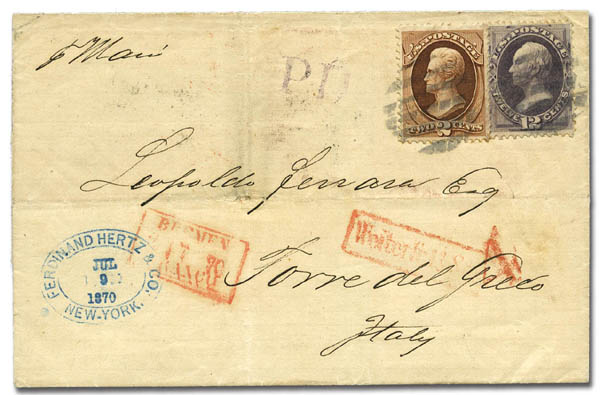 pr Main
PD
U.S. POSTAGE
TWO CENTS
U.S. POSTAGE
12
Leopoldo Ferrara Esq
FERDINAND HERTZ & CO.
JUL
9
1870
NEW-YORK.
BREMEN
17 7 70
FRANCO
Torre del Greco
Italy